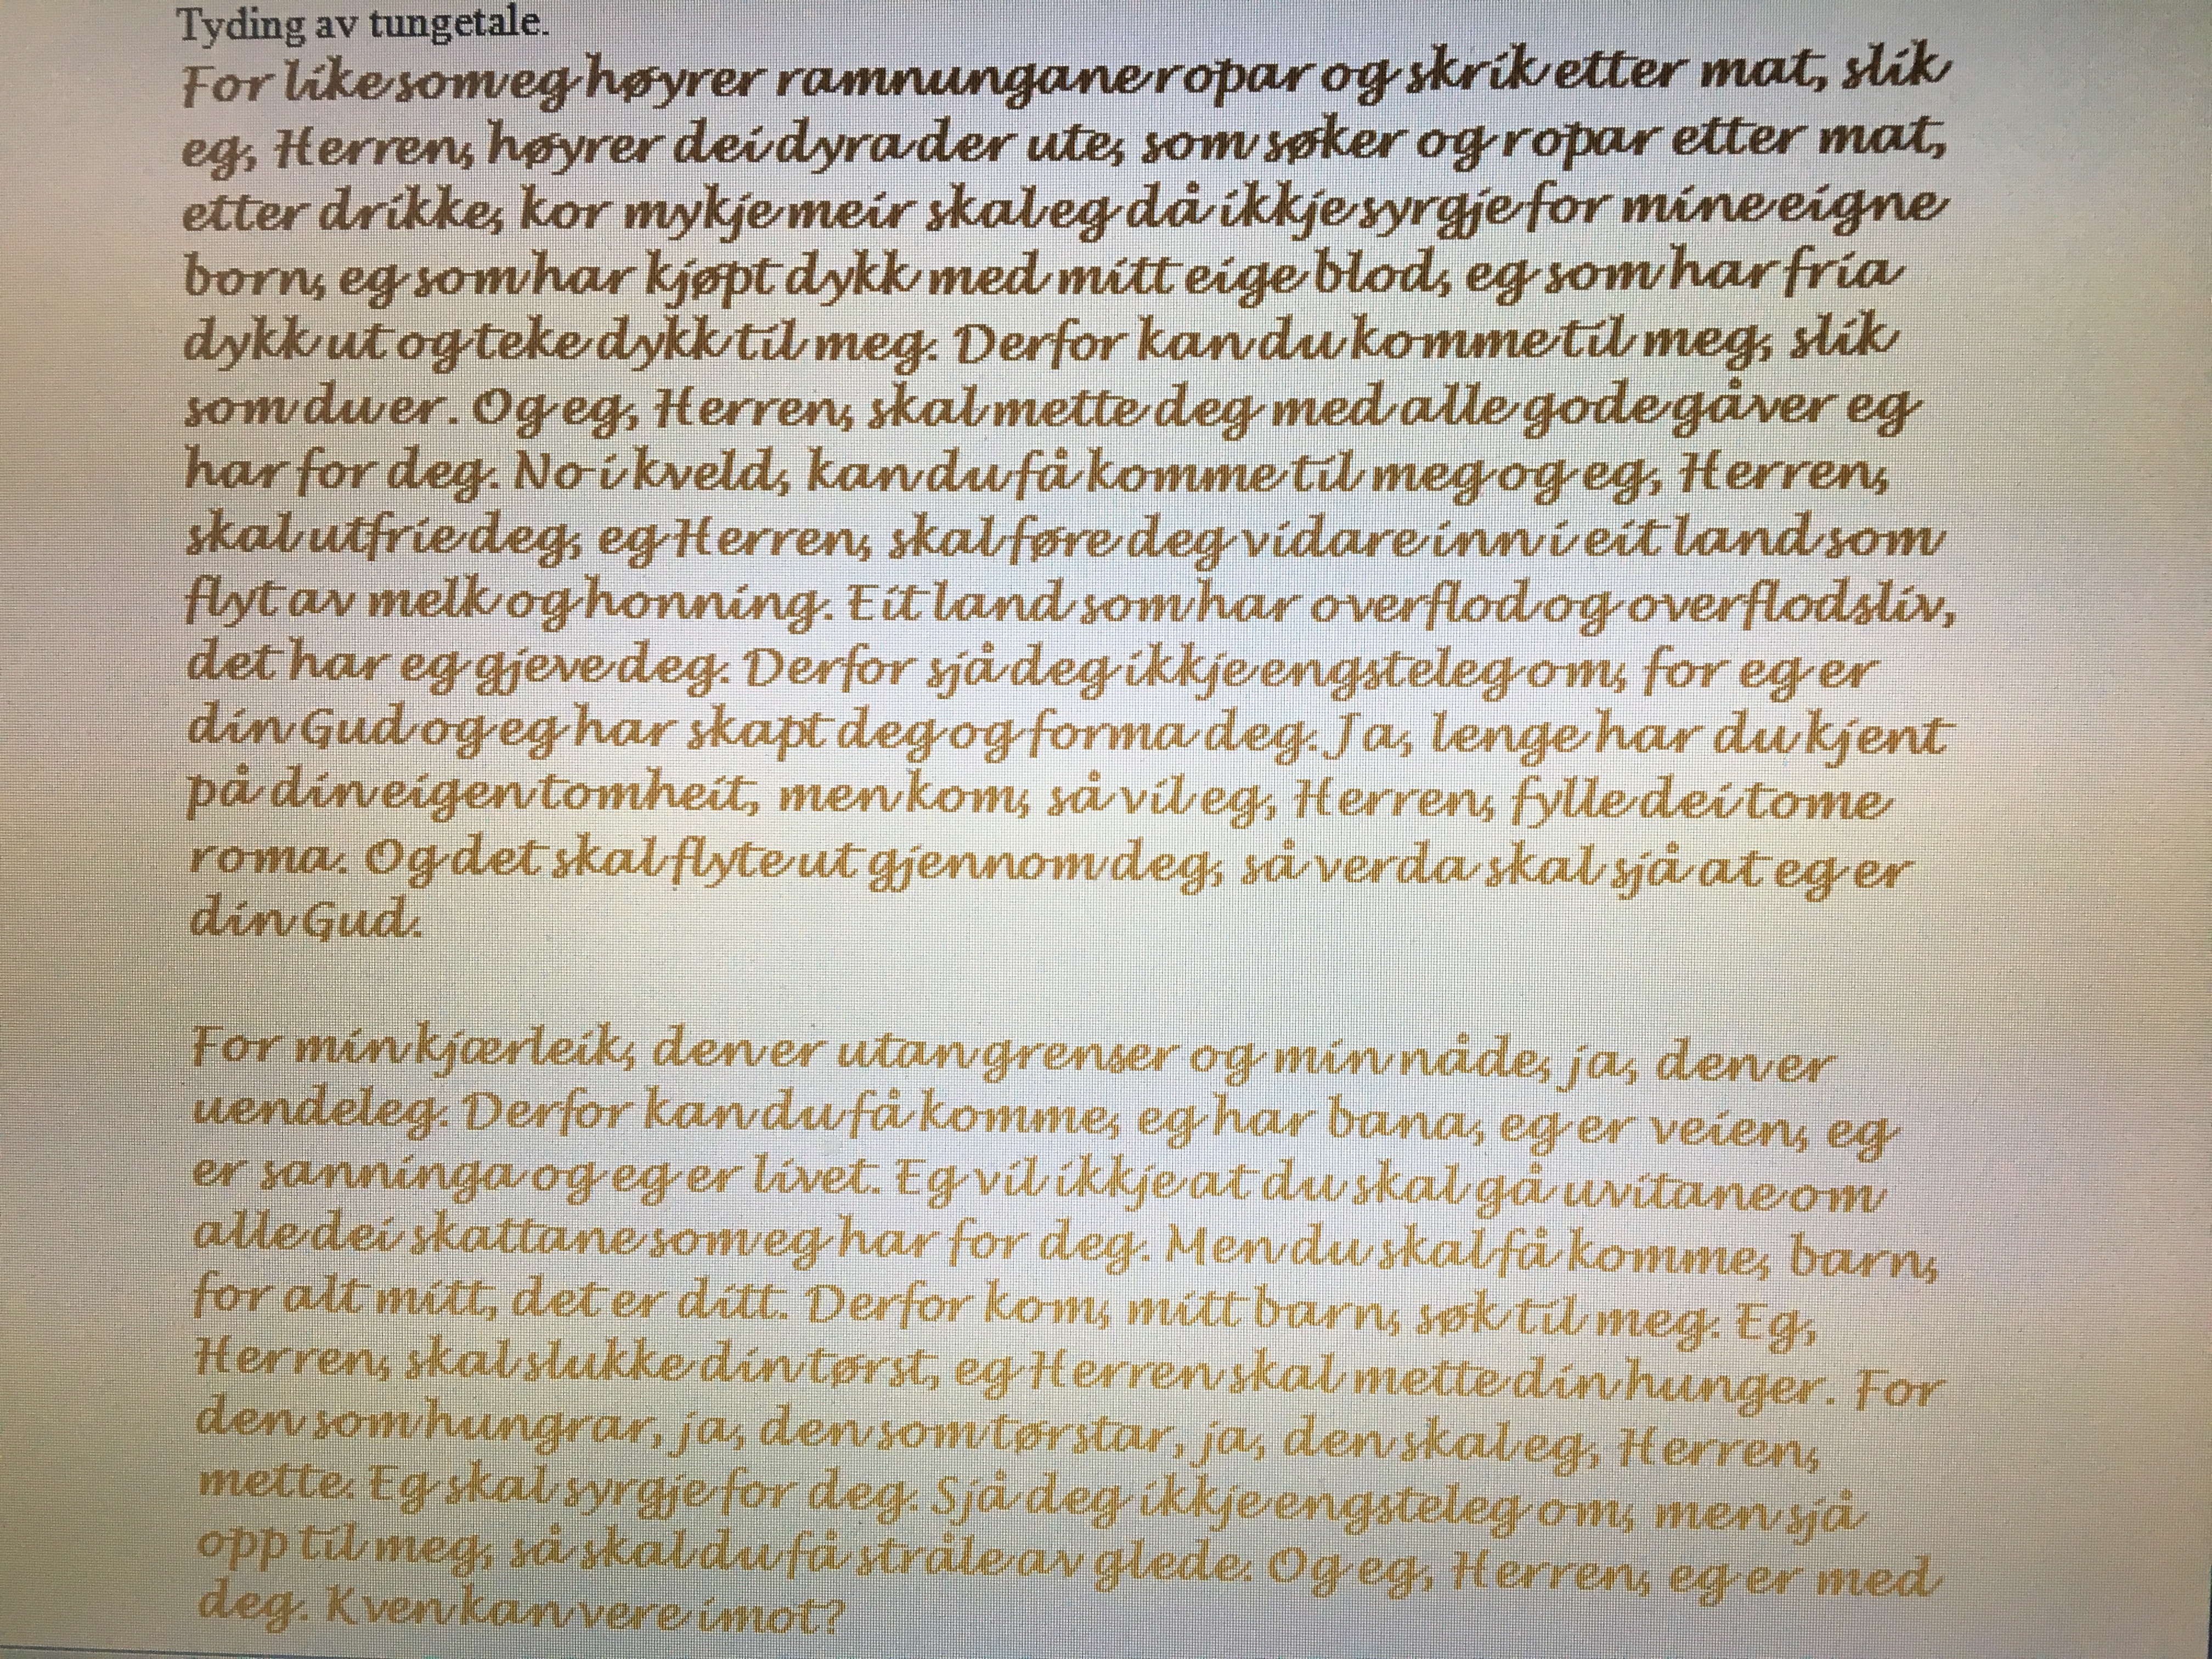 Tyding av tungetale.
For like som eg høyrer ramnungane ropar og skrik etter mat, slik
eg, Herren, høyrer dei dyra der ute, som søker og ropar etter mat,
etter drikke, kor mykje meir skal eg då ikkje syrgje for mine eigne
born, eg som har kjøpt dykk med mitt eige blod, eg som har fria
dykk ut og teke dykk til meg. Derfor kan du komme til meg, slik
som du er. Og eg, Herren, skal mette deg med alle gode gåver eg
har for deg. No i kveld, kan du få komme til meg og eg, Herren,
skal utfrie deg, eg Herren, skal føre deg vidare inn i eit land som
flyt av melk og honning. Eit land som har overflod og overflodsliv,
det har eg gjeve deg. Derfor sjå deg ikkje engsteleg om, for eg er
din Gud og eg har skapt deg og forma deg. Ja, lenge har du kjent
på din eigen tomheit, men kom, så vil eg, Herren, fylle dei tome
roma. Og det skal flyte ut gjennom deg, så verda skal sjå at eg er
din Gud.
For min kjærleik, den er utan grenser og min nåde, ja, den er
uendeleg. Derfor kan du få komme, eg har bana, eg er veien, eg
er sanninga og eg er livet. Eg vil ikkje at du skal gå uvitane om
alle dei skattane som eg har for deg. Men du skal få komme, barn,
for alt mitt, det er ditt. Derfor kom, mitt barn, søk til meg. Eg,
Herren, skal slukke din tørst, eg Herren skal mette din hunger. For
den som hungrar, ja, den som tørstar, ja, den skal eg, Herren,
mette. Eg skal syrgje for deg. Sjå deg ikkje engsteleg om, men sjå
opp til meg, så skal du få stråle av glede. Og eg, Herren, eg er med
deg. Kven kan vere imot?